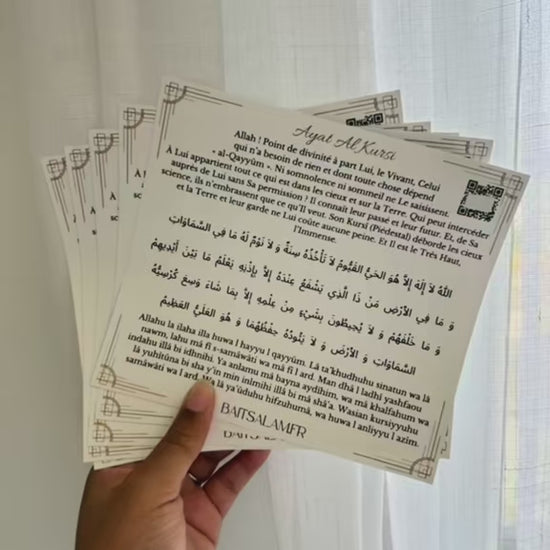 Ayat Al Kursi
Allah ! Point de divinité à part Lui, le Vivant, Celui
qui n'a besoin de rien et dont toute chose dépend
« al-Qayyûm ». Ni somnolence ni sommeil ne Le saisissent.
À Lui appartient tout ce qui est dans les cieux et sur la Terre. Qui peut intercéder
auprès de Lui sans Sa permission ? Il connaît leur passé et leur futur. Et, de Sa
science, ils n'embrassent que ce qu'Il veut. Son Kursî (Piédestal) déborde les cieux
et la Terre et leur garde ne Lui coûte aucune peine. Et Il est le Très Haut,
l'Immense.
اللَّهُ لَا إِلَٰهَ إِلَّا هُوَ الْحَيُّ الْقَيُّومُ لَا تَأْخُذُهُ سِنَةٌ وَ لَا نَوْمٌ لَهُ مَا فِي السَّمَاوَاتِ
وَ مَا فِي الْأَرْضِ مَنْ ذَا الَّذِي يَشْفَعُ عِنْدَهُ إِلَّا بِإِذْنِهِ يَعْلَمُ مَا بَيْنَ أَيْدِيهِمْ
وَ مَا خَلْفَهُمْ وَ لَا يُحِيطُونَ بِشَيْءٍ مِنْ عِلْمِهِ إِلَّا بِمَا شَاءَ وَسِعَ كُرْسِيُّهُ
السَّمَاوَاتِ وَ الْأَرْضَ وَ لَا يَئُودُهُ حِفْظُهُمَا وَ هُوَ الْعَلِيُّ الْعَظِيمُ
Allahu la ilaha illa huwa l hayyu l qayyûm. Lâ ta'khudhuhu sinatun wa lâ
nawm, lahu mâ fî s-samâwâti wa mâ fî l ard. Man dhâ l ladhî yashfaou
indahu illâ bi idhnihi. Ya anlamu mâ bayna aydihim, wa mâ khalfahum wa
lâ yuhîtûna bi sha y'in min inlmihi illâ bi mâ shâ'a. Wasian kursiyyuhu
samâwâti wa l ard. Wa lâ ya'ûduhu hifzuhumâ, wa huwa l anliyyu l azim.
BAITSALAMFR